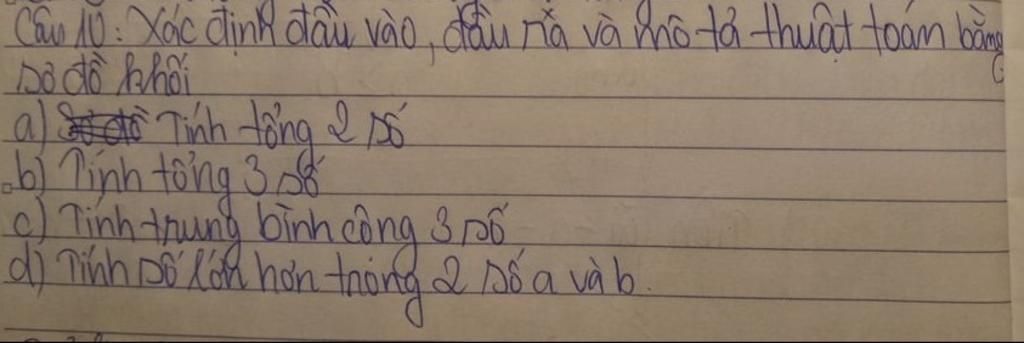 Câu 10: Xác định đầu vào, đầu ra và mô tả thuật toán bằng
sơ đồ khối
a) Tính tổng 2 số
b) Tính tổng 3 số
c) Tính trung bình cộng 3 số
d) Tính số lớn hơn trong 2 số a và b.